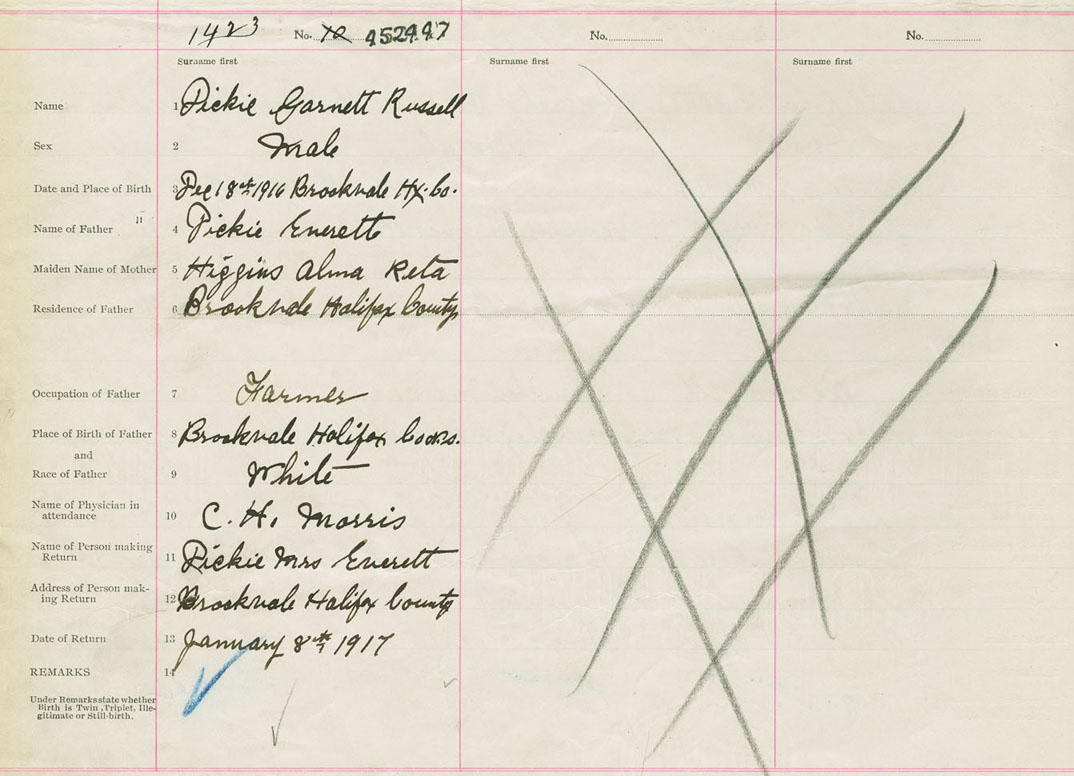 1423 No. 10 452447 No. No.
Surname first Surname first Surname first
Name 1 Dickie Garnett Russell
Sex 2 Male
Date and Place of Birth 3 Dec 18th 1916 Brookvale Hx. Co.
Name of Father 4 Dickie Everette
Maiden Name of Mother 5 Higgins Alma Reta
Residence of Father 6 Brookvale Halifax County
Occupation of Father 7 Farmer
Place of Birth of Father 8 Brookvale Halifax
and
Race of Father 9 White
Name of Physician in
attendance 10 C. H. Morris
Name of Person making
Return 11 Dickie Mrs Everett
Address of Person mak-
ing Return 12 Brookvale Halifax County
Date of Return 13 January 8th 1917
REMARKS 14
Under Remarks state whether
Birth is Twin, Triplet, Ille-
gitimate or Still-birth.